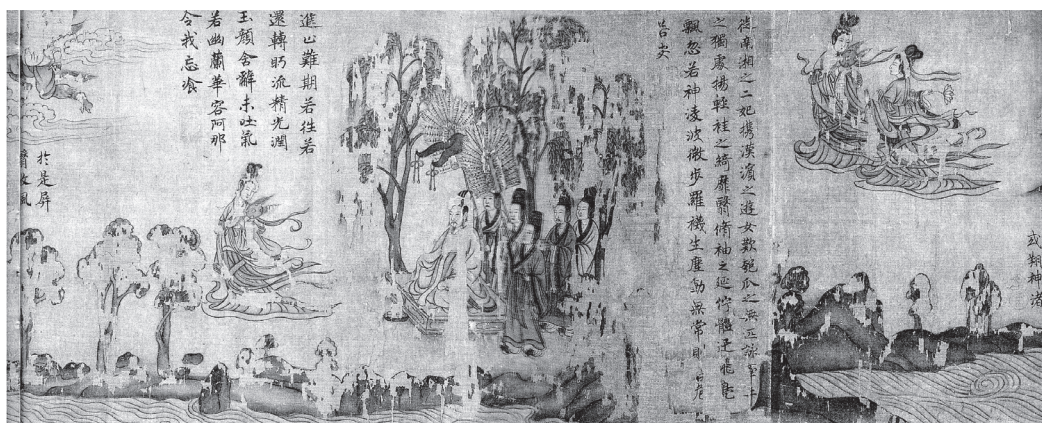 或翔神渚
從南湘之二妃携漢濱之遊女歎匏瓜之無匹
之獨處揚輕袿之綺靡翳脩袖之延佇體迅飛鳧
飄忽若神凌波微步羅襪生塵動無常則若危
若安
進止難期若往若
還轉眄流精光潤
玉顏含辭未吐氣
若幽蘭華容阿那
令我忘飡
於是屏
翳收風